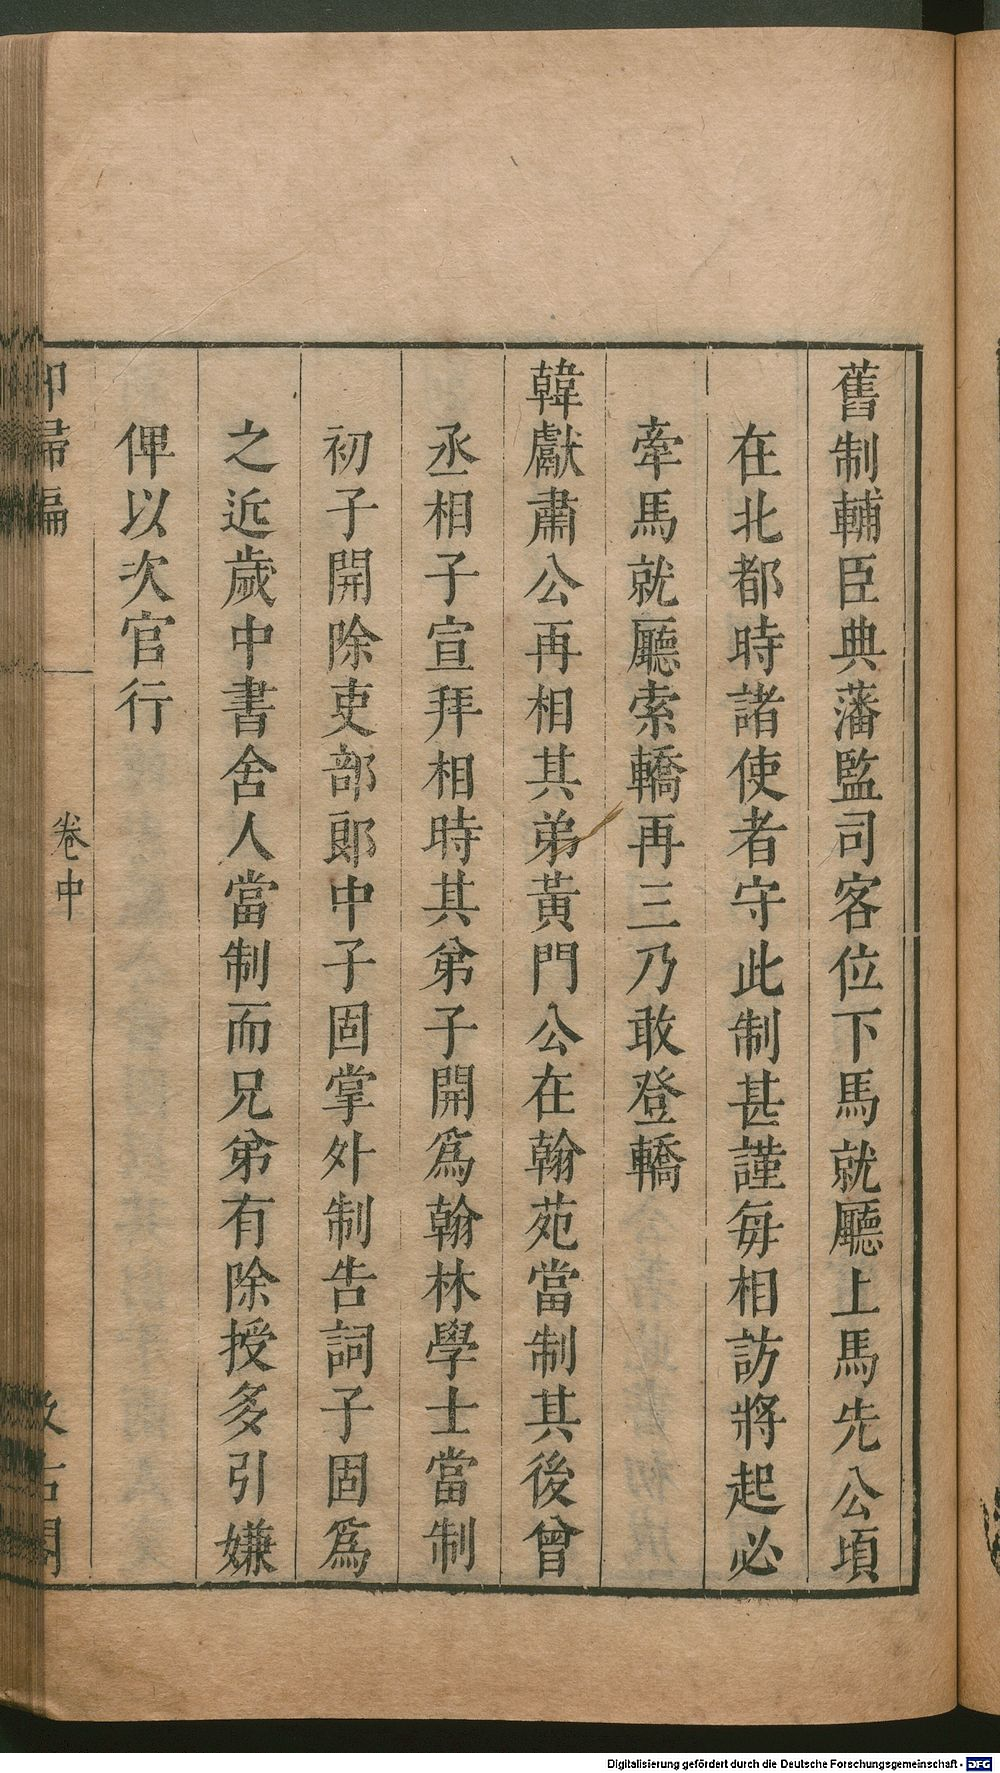 舊制輔臣典藩監司客位下馬就廳上馬先公頃
在北都時諸使者守此制甚謹每相訪將起必
牽馬就廳索轎再三乃敢登轎
韓獻肅公再相其弟黃門公在翰苑當制其後曾
丞相子宣拜相時其弟子開爲翰林學士當制
初子開除吏部郎中子固掌外制告詞子固爲
之近歲中書舍人當制而兄弟有除授多引嫌
俾以次官行
卻埽編
卷中
汲古閣
Digitalisierung gefördert durch die Deutsche Forschungsgemeinschaft - DFG